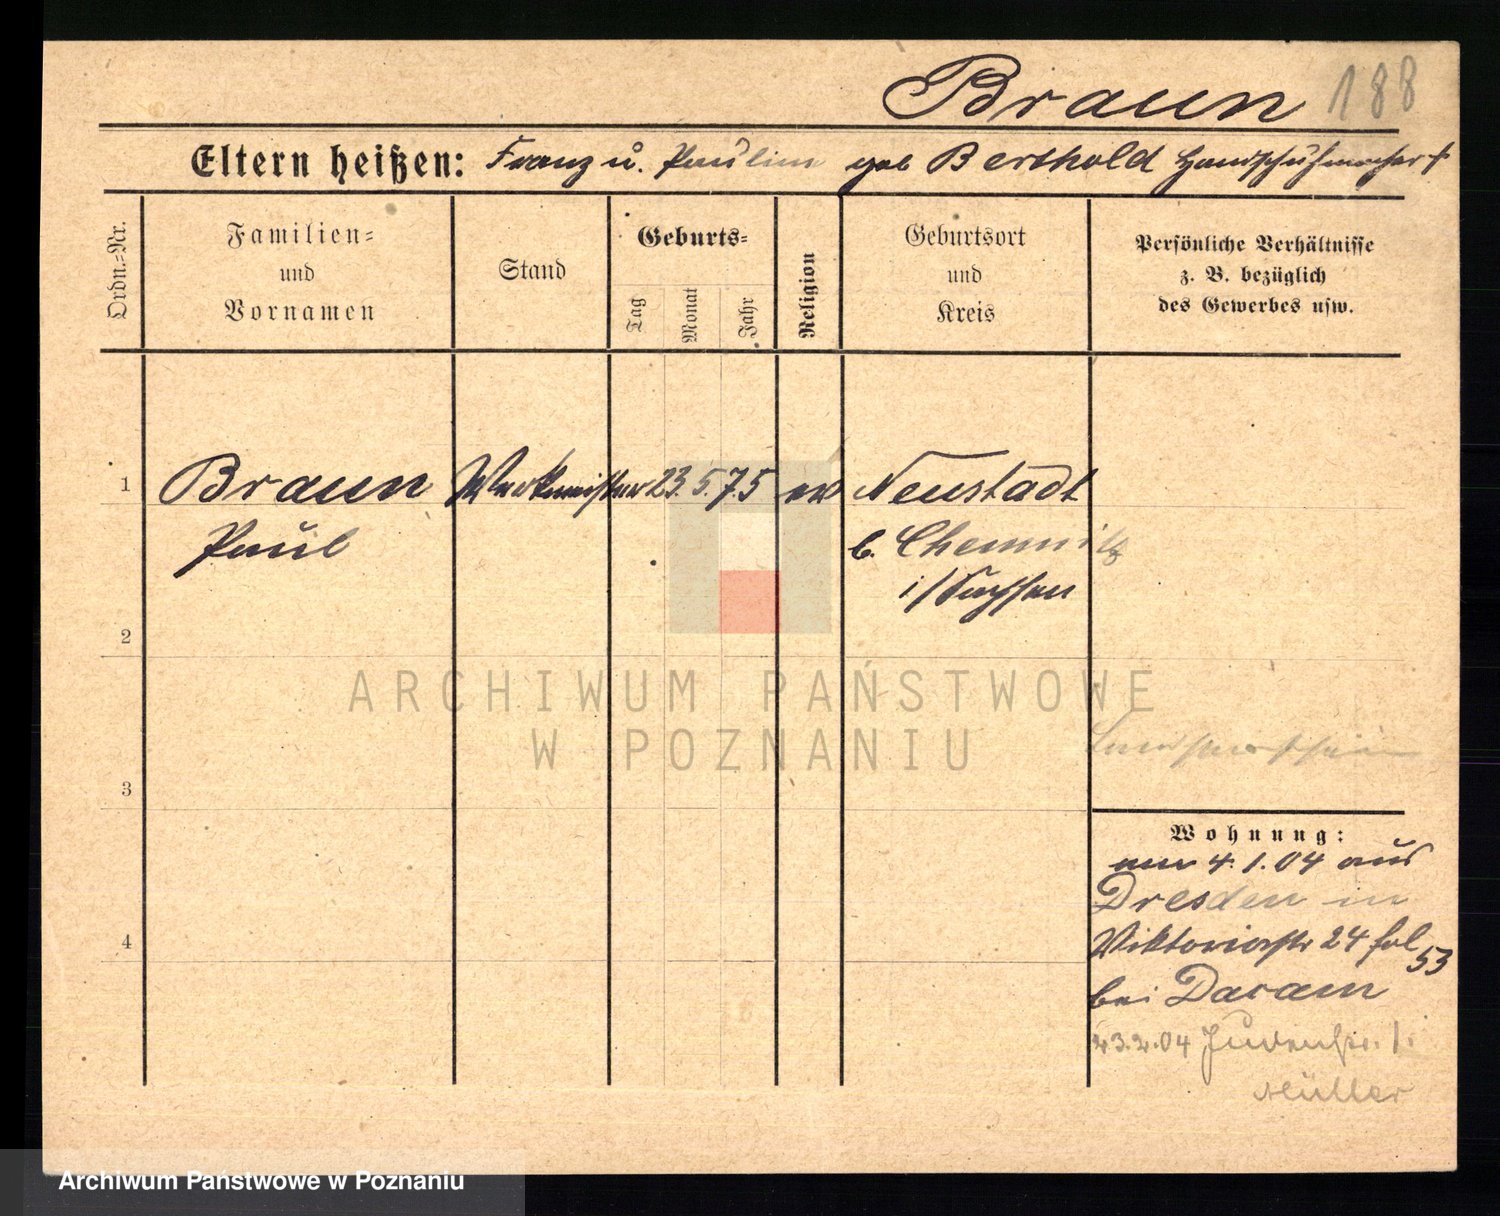 Braun 188
Eltern heißen: Franz u. Pauline geb Berthold Handschuhmacher †
Ordn.-Nr.
Familien-
und
Vornamen
Stand
Geburts-
Tag
Monat
Jahr
Religion
Geburtsort
und
Kreis
Persönliche Verhältnisse
z. B. bezüglich
des Gewerbes usw.
1 Braun Werkmeister 23. 5. 75 ev Neustadt
Paul b. Chemnitz
i/Sachsen
2
ARCHIWUM PAŃSTWOWE
W POZNANIU
3
Wohnung:
4. 1. 04 aus
Dresden in
4 Viktoriastr 24 53
bei
23.2.04 Judenstr. 1.
Müller
Archiwum Państwowe w Poznaniu